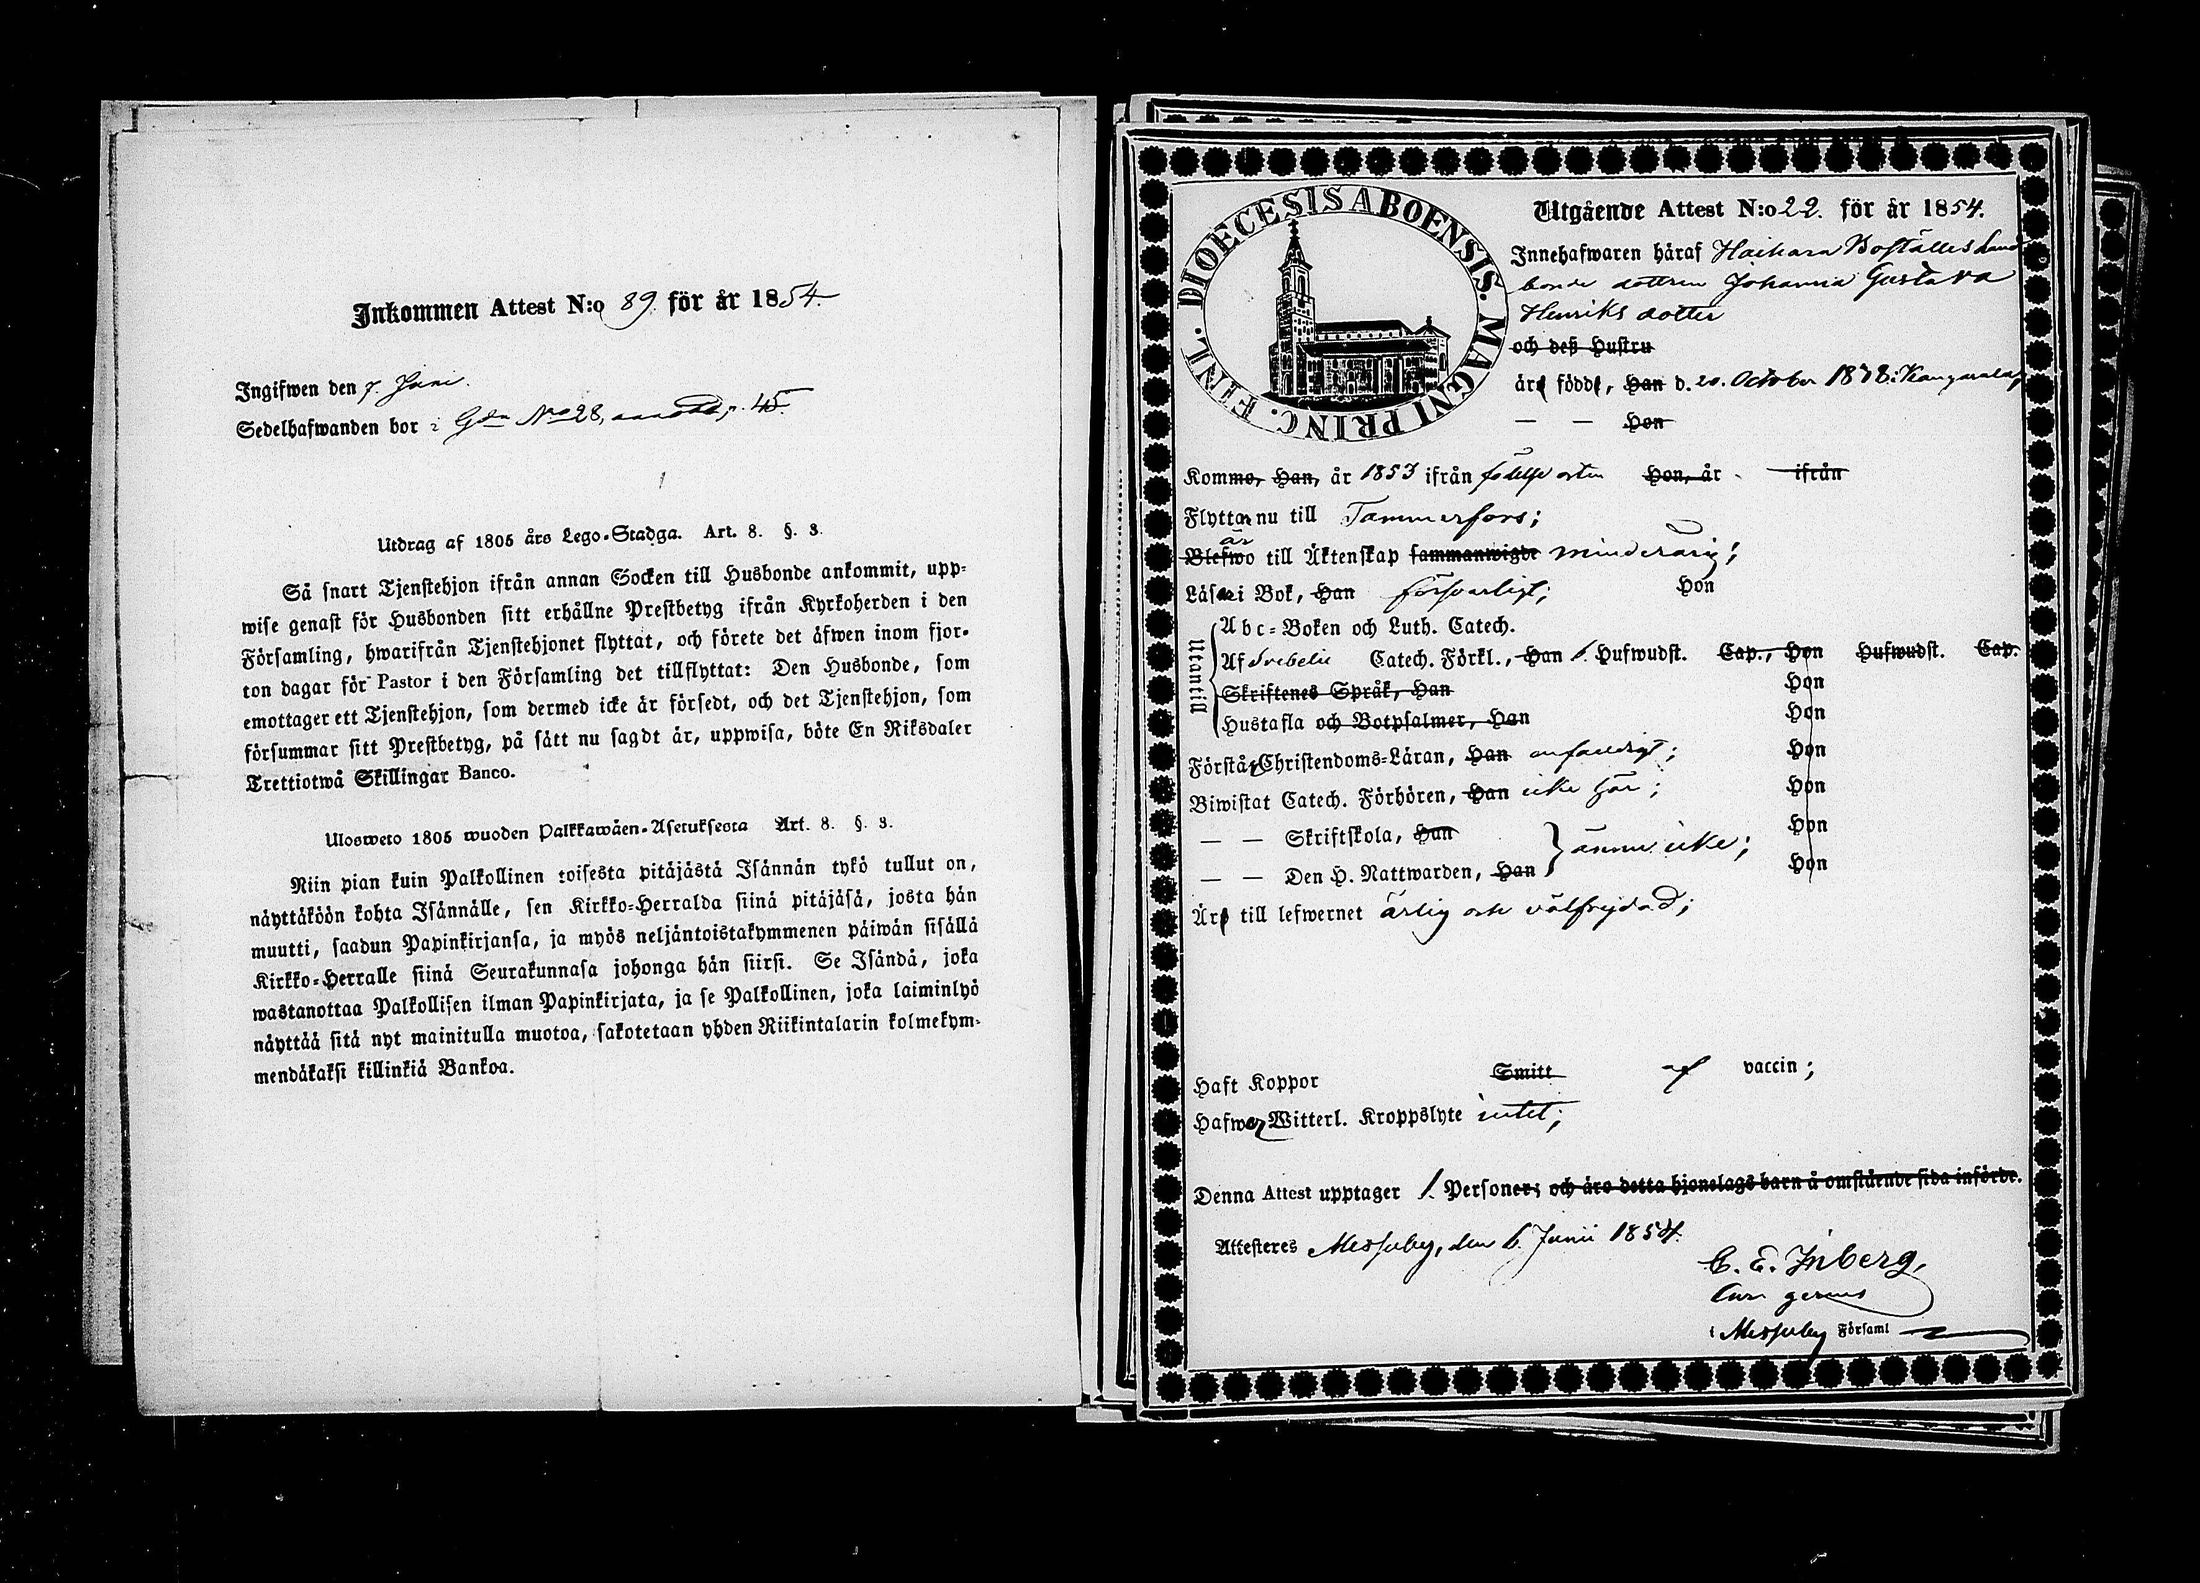 Inkommen Attest N:o 89. för år 1854.
Ingifwen den 7. Juni.
Sedelhafwanden bor i Gdn No 28,
Utdrag af 1805 års Lego-Stadga. Art. 8. §. 3.
Så snart Tjenstehjon ifrån annan Socken till Husbonde ankommit, upp-
wise genast för Husbonden sitt erhållne Prestbetyg ifrån Kyrkoherden i den
Församling, hwarifrån Tjenstehjonet flyttat, och förete det äfwen inom fjor-
ton dagar för Pastor i den Församling det tillflyttat: Den Husbonde, som
emottager ett Tjenstehjon, som dermed icke är försedt, och det Tjenstehjon, som
försummar sitt Prestbetyg, på sätt nu sagdt är, uppwisa, böte En Riksdaler
Trettiotwå Skillingar Banco.
Ulosweto 1805 wuoden Palkkawäen-Asetuksesta Art. 8. §. 3.
Niin pian kuin Palkollinen toisesta pitäjästä Isännän tykö tullut on,
näyttäköön kohta Isännälle, sen Kirkko-Herralda siinä pitäjäsä, josta hän
muutti, saadun Papinkirjansa, ja myös neljäntoistakymmenen päiwän sisällä
Kirkko-Herralle siinä Seurakunnasa johonga hän siirsi. Se Isändä, joka
wastanottaa Palkollisen ilman Papinkirjata, ja se Palkollinen, joka laiminlyö
näyttää sitä nyt mainitulla muotoa, sakotetaan yhden Riikintalarin kolmekym-
mendäkaksi killinkiä Bankoa.
DIOECESIS ABOENSIS. MAGNI PRINC. FINL.
Utgående Attest N:o 22. för år 1854.
Innehafwaren häraf Haihara Boställes Land
bonde dottren Johanna Gustava
Henriks dotter
och deß Hustru
är född, Han d. 20. October 1838. i Kangasala,
— — Hon
Komme, Han, år 1853 ifrån födelse orten Hon, år ifrån
Flyttar nu till Tammerfors;
är
Blefwo till Äktenskap sammanwigde minderårig;
Läser i Bok, Han försvarligt; Hon
Utantill
Abc-Boken och Luth. Catech.
Af Svebelii Catech. Förkl., Han 6. Hufwudst. Cap., Hon Hufwudst. Cap.
Skriftenes Språk, Han Hon
Hustafla och Botpsalmer, Han Hon
Förstår Christendoms-Läran, Han enfaldigt; Hon
Biwistat Catech. Förhören, Han icke här; Hon
— — Skriftskola, Han Hon
ännu icke;
— — Den H. Nattwarden, Han Hon
Är till lefwernet ärlig och välfrejdad;
Haft Koppor Smitt af vaccin;
Hafwer Witterl. Kroppslyte intet;
Denna Attest upptager 1. Personer; och äro detta hjonelags barn å omstående sida införde.
Attesteres Messuby, den 6. Junii 1854.
C. E. Inberg,
Cur. gerens
i Messuby Församl